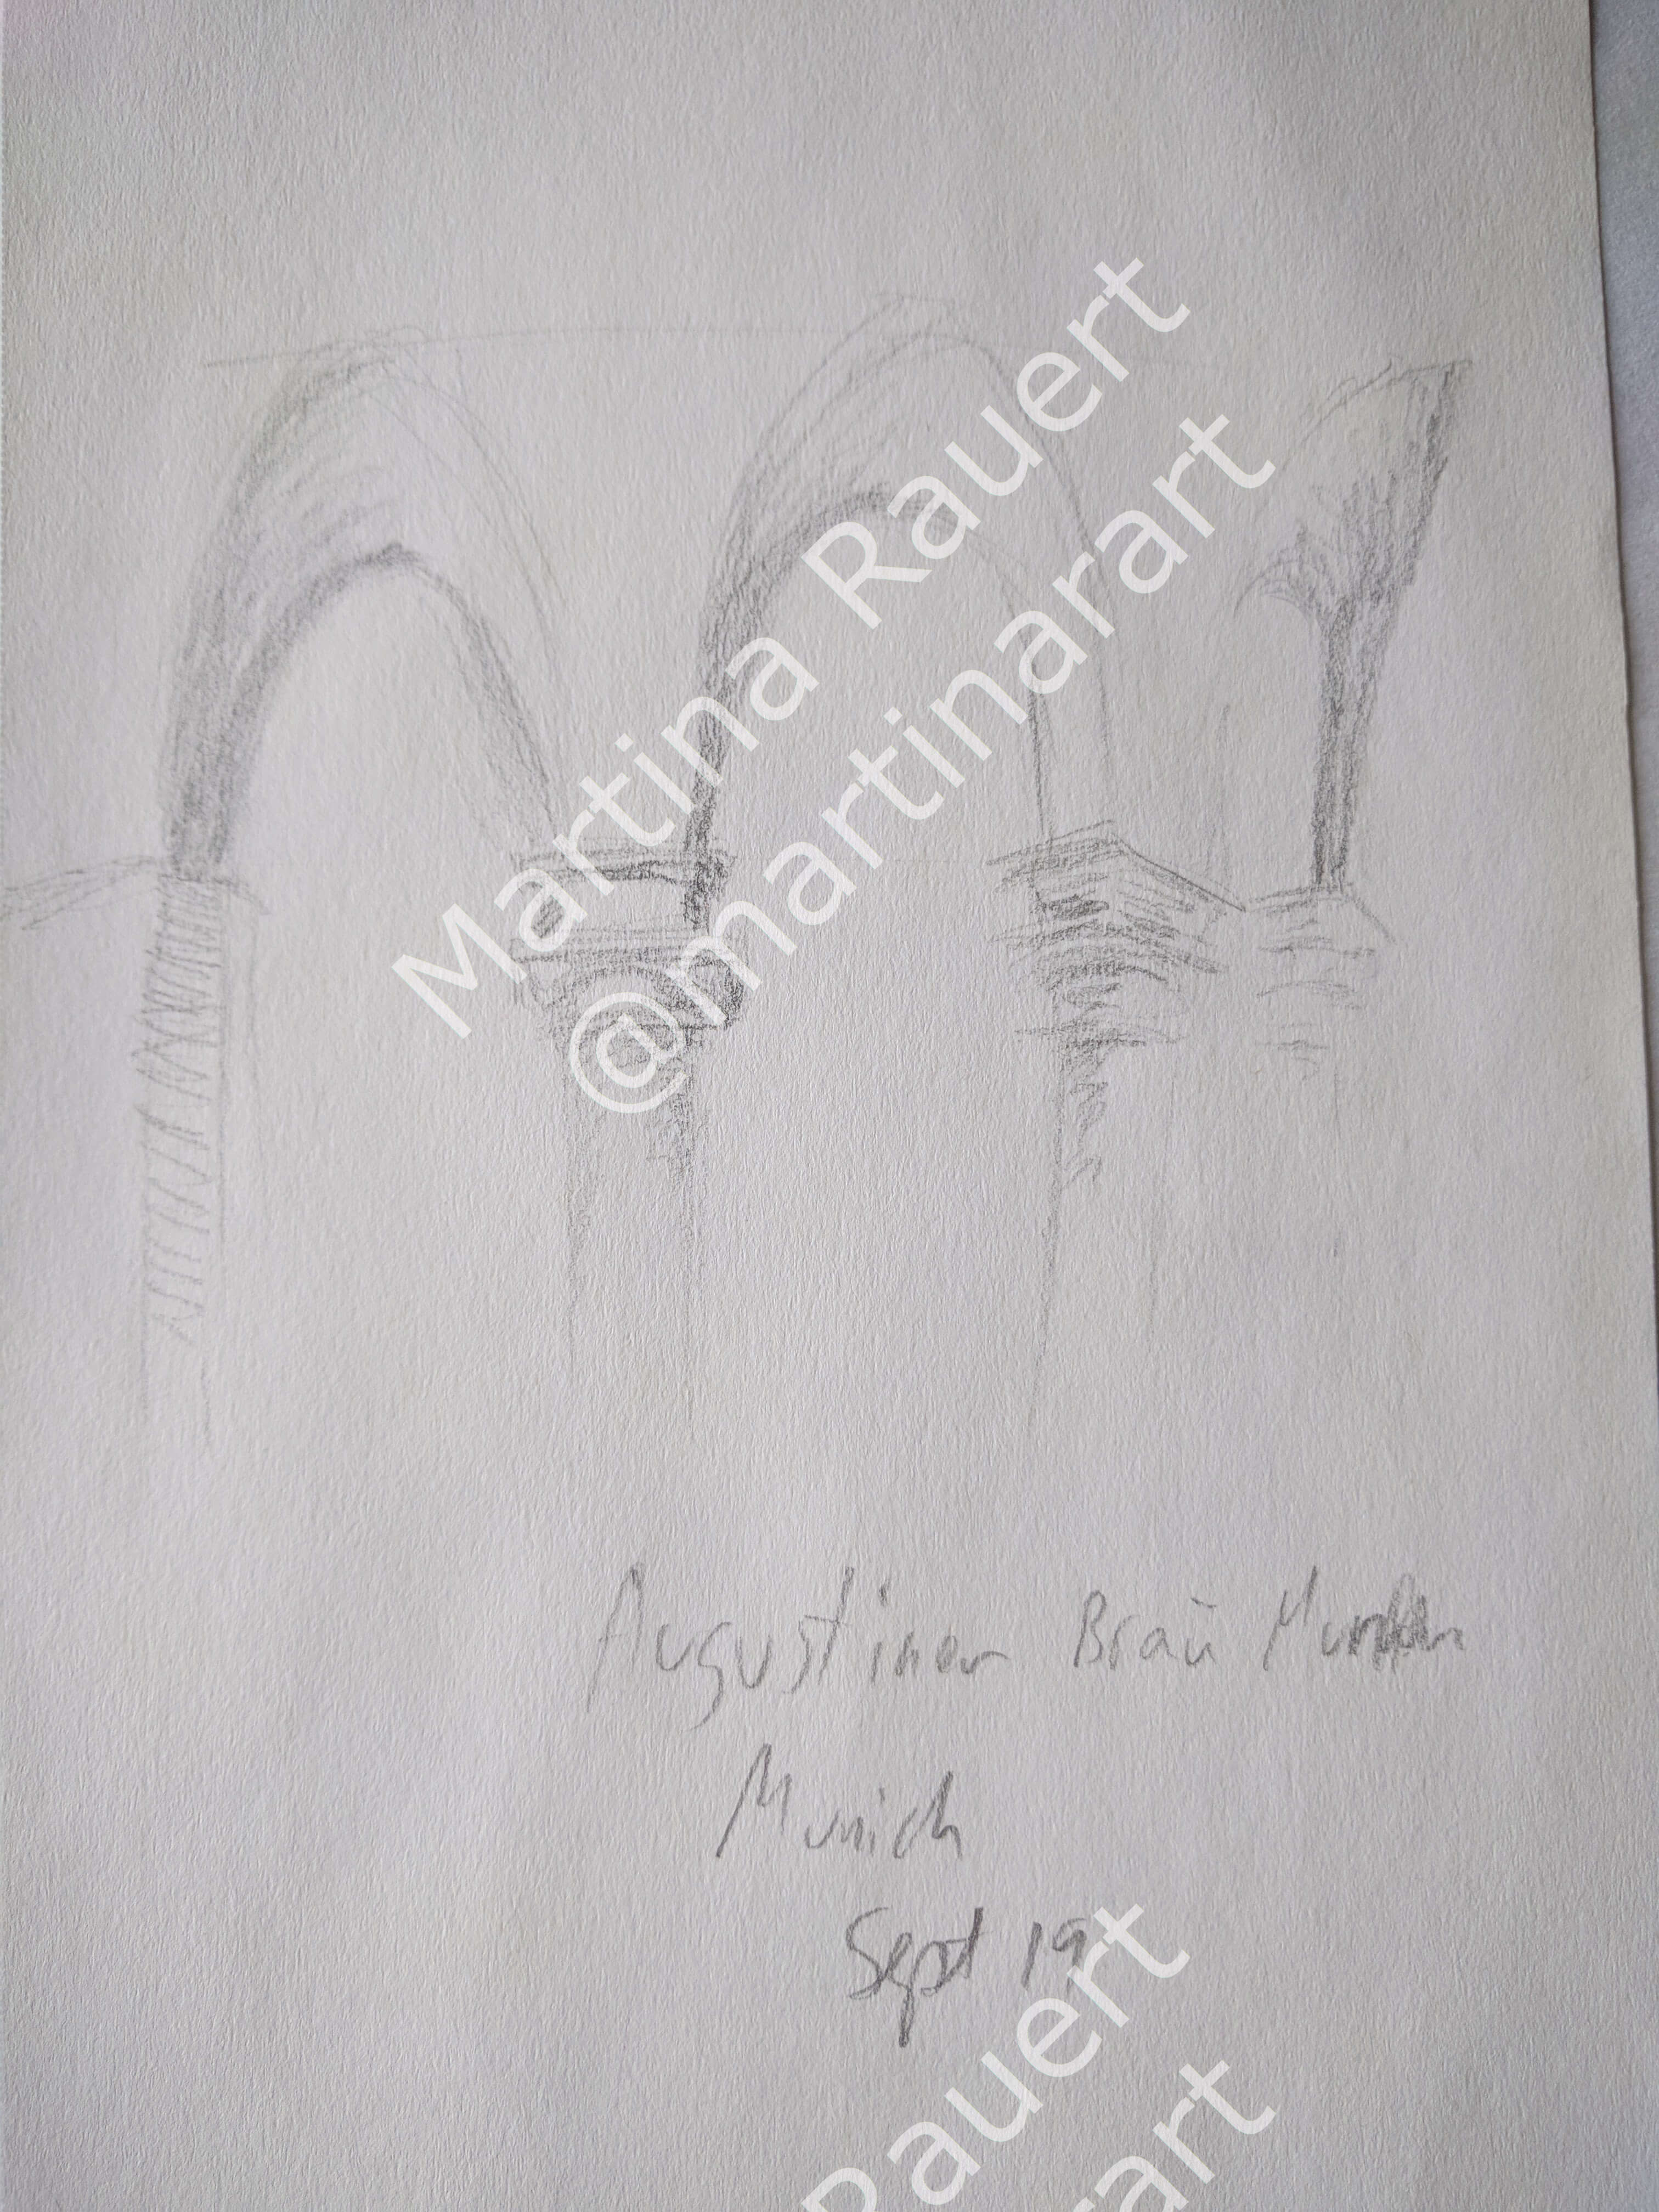 Martina Rauert
@martinarart
Augustiner Bräu
Munich
Sept 19
Rauert
rart